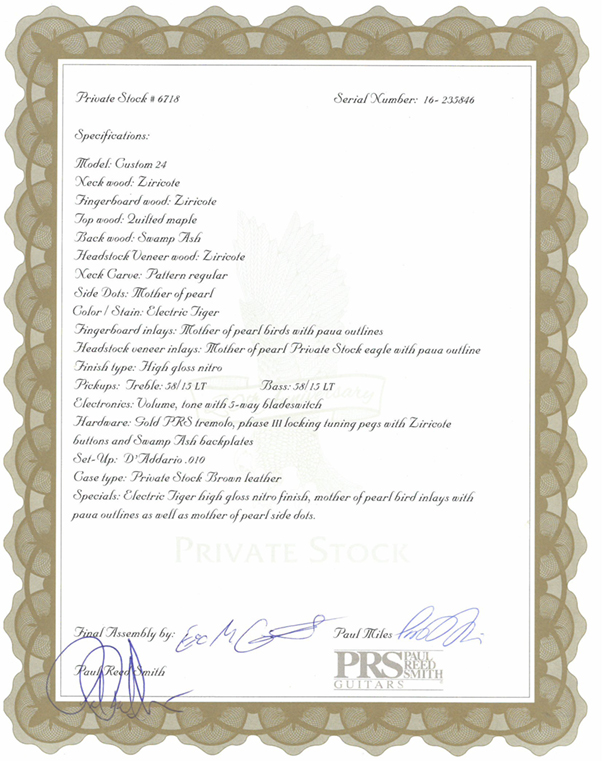 Private Stock # 6718 Serial Number: 16- 235846
Specifications:
Model: Custom 24
Neck wood: Ziricote
Fingerboard wood: Ziricote
Top wood: Quilted maple
Back wood: Swamp Ash
Headstock Veneer wood: Ziricote
Neck Carve: Pattern regular
Side Dots: Mother of pearl
Color / Stain: Electric Tiger
Fingerboard inlays: Mother of pearl birds with paua outlines
Headstock veneer inlays: Mother of pearl Private Stock eagle with paua outline
Finish type: High gloss nitro
Pickups: Treble: 58/15 LT Bass: 58/15 LT
Electronics: Volume, tone with 5-way bladeswitch
Hardware: Gold PRS tremolo, phase III locking tuning pegs with Ziricote
buttons and Swamp Ash backplates
Set-Up: D'Addario .010
Case type: Private Stock Brown leather
Specials: Electric Tiger high gloss nitro finish, mother of pearl bird inlays with
paua outlines as well as mother of pearl side dots.
PRIVATE STOCK
Final Assembly by: Paul Miles
Paul Reed Smith
PRS PAUL REED SMITH
GUITARS